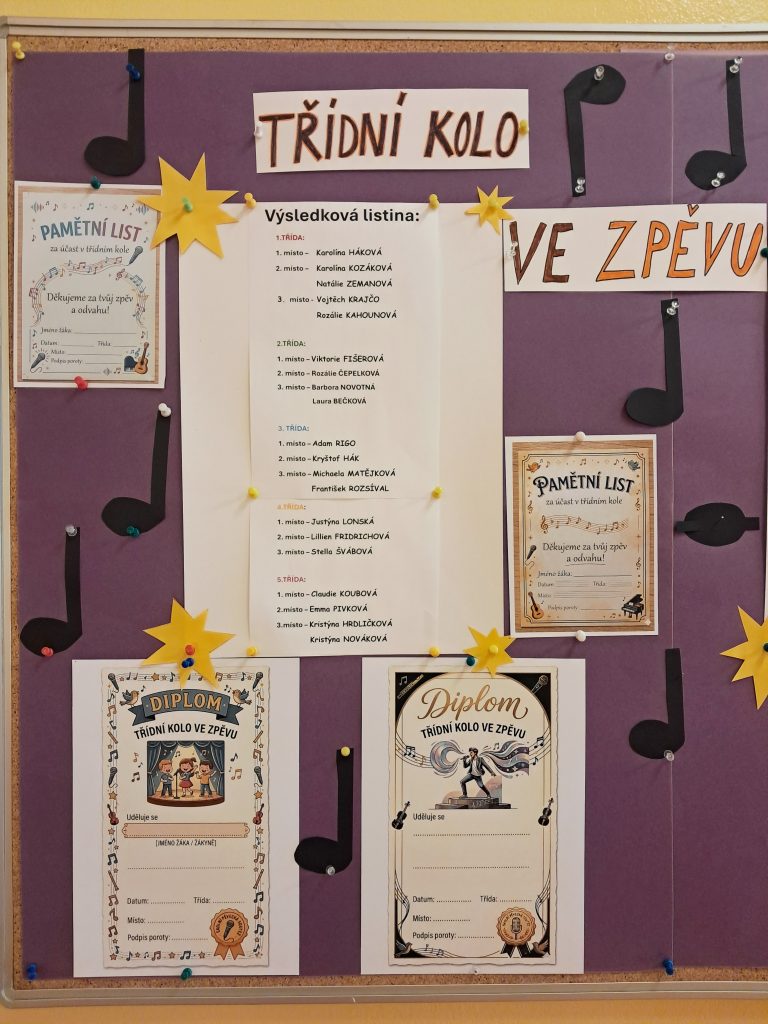 TŘÍDNÍ KOLO
VE ZPĚVU
PAMĚTNÍ LIST
za účast v třídním kole
Děkujeme za tvůj zpěv
a odvahu!
Jméno žáka:
Datum: Třída:
Místo:
Podpis poroty:
Výsledková listina:
1.TŘÍDA:
1. místo – Karolína HÁKOVÁ
2. místo – Karolína KOZÁKOVÁ
Natálie ZEMANOVÁ
3. místo - Vojtěch KRAJČO
Rozálie KAHOUNOVÁ
2.TŘÍDA:
1. místo – Viktorie FIŠEROVÁ
2. místo – Rozálie ČEPELKOVÁ
3. místo – Barbora NOVOTNÁ
Laura BEČKOVÁ
3. TŘÍDA:
1. místo – Adam RIGO
2. místo – Kryštof HÁK
3. místo – Michaela MATĚJKOVÁ
František ROZSÍVAL
4.TŘÍDA:
1. místo – Justýna LONSKÁ
2. místo – Lillien FRIDRICHOVÁ
3. místo – Stella ŠVÁBOVÁ
5.TŘÍDA:
1. místo – Claudie KOUBOVÁ
2.místo – Emma PIVKOVÁ
3.místo – Kristýna HRDLIČKOVÁ
Kristýna NOVÁKOVÁ
PAMĚTNÍ LIST
za účast v třídním kole
Děkujeme za tvůj zpěv
a odvahu!
Jméno žáka:
Datum Třída:
Místo
Podpis poroty:
DIPLOM
TŘÍDNÍ KOLO VE ZPĚVU
Uděluje se
[JMÉNO ŽÁKA / ŽÁKYNĚ]
Datum: Třída:
Místo:
Podpis poroty:
Diplom
TŘÍDNÍ KOLO VE ZPĚVU
Uděluje se
Datum: Třída:
Místo:
Podpis poroty: